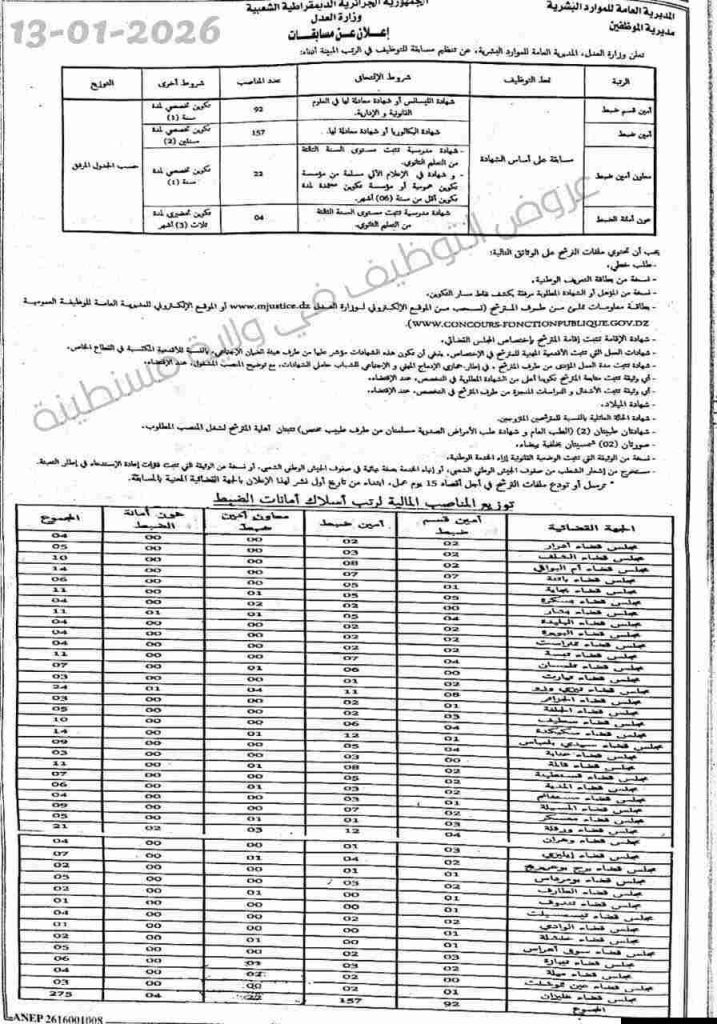 الجمهورية الجزائرية الديمقراطية الشعبية
المديرية العامة للموارد البشرية
وزارة العدل
مديرية الموظفين
إعلان عن مسابقات
13-01-2026
تعلن وزارة العدل، المديرية العامة للموارد البشرية، عن تنظيم مسابقة للتوظيف في الرتب المبينة أدناه:
الرتبة نمط التوظيف شروط الإلتحاق عدد المناصب شروط أخرى التوزيع
أمين قسم ضبط
شهادة الليسانس أو شهادة معادلة لها في العلوم القانونية و الإدارية.
92
تكوين تخصصي لمدة سنة (1)
أمين ضبط
شهادة البكالوريا أو شهادة معادلة لها.
157
تكوين تخصصي لمدة سنتين (2)
مسابقة على أساس الشهادة
حسب الجدول المرفق
معاون أمين ضبط
- شهادة مدرسية تثبت مستوى السنة الثالثة من التعليم الثانوي.
- و شهادة في الإعلام الآلي مسلمة من مؤسسة تكوين عمومية أو مؤسسة تكوين معتمدة لمدة تكوين أقل من سنة (06) أشهر.
22
تكوين تخصصي لمدة سنة (1)
عون أمانة الضبط
شهادة مدرسية تثبت مستوى السنة الثالثة من التعليم الثانوي.
04
تكوين تحضيري لمدة ثلاث (3) أشهر
عروض التوظيف في ولاية قسنطينة
يجب أن تحتوي ملفات الترشح على الوثائق التالية:
- طلب خطي.
- نسخة من بطاقة التعريف الوطنية.
- نسخة من المؤهل أو الشهادة المطلوبة مرفقة بكشف نقاط مسار التكوين.
- بطاقة معلومات تملئ من طرف المترشح (تسحب من الموقع الإلكتروني لوزارة العدل www.mjustice.dz أو الموقع الإلكتروني للمديرية العامة للوظيفة العمومية
WWW.CONCOURS-FONCTIONPUBLIQUE.GOV.DZ).
- شهادة الإقامة تثبت إقامة المترشح بإختصاص المجلس القضائي.
- شهادات العمل التي تثبت الأقدمية المهنية للمترشح في الإختصاص، ينبغي أن تكون هذه الشهادات مؤشر عليها من طرف هيئة الضمان الإجتماعي، بالنسبة للأقدمية المكتسبة في القطاع الخاص.
- شهادة تثبت مدة العمل المؤدى من طرف المترشح، في إطار جهازي الإدماج المهني و الإجتماعي للشباب حاملي الشهادات، مع توضيح المنصب المشغول، عند الإقتضاء.
- أي وثيقة تثبت متابعة المترشح تكوينا أعلى من الشهادة المطلوبة في التخصص، عند الإقتضاء.
- أي وثيقة تثبت الأشغال و الدراسات المنجزة من طرف المترشح في التخصص، عند الإقتضاء.
- شهادة الميلاد.
- شهادة الحالة العائلية بالنسبة للمترشحين المتزوجين.
- شهادتان طبيتان (2) (الطب العام و شهادة طب الأمراض الصدرية مسلمتان من طرف طبيب مختص) تثبتان أهلية المترشح لشغل المنصب المطلوب.
- صورتان (02) شمسيتان بخلفية بيضاء.
- نسخة من الوثيقة التي تثبت الوضعية القانونية إزاء الخدمة الوطنية.
- مستخرج من إشعار الشطب من صفوف الجيش الوطني الشعبي، أو إنهاء الخدمة بصفة نهائية في صفوف الجيش الوطني الشعبي، أو نسخة من الوثيقة التي تثبت فترات إعادة الإستدعاء في إطار التعبئة.
* ترسل أو تودع ملفات الترشح في أجل أقصاه 15 يوم عمل، ابتداء من تاريخ أول نشر لهذا الإعلان بالجهة القضائية المعنية بالمسابقة.
توزيع المناصب المالية لرتب أسلاك أمانات الضبط
الجهة القضائية أمين قسم ضبط أمين ضبط معاون أمين ضبط عون أمانة الضبط المجموع
مجلس قضاء أدرار 02 02 00 00 04
مجلس قضاء الشلف 02 03 00 00 05
مجلس قضاء أم البواقي 02 08 00 00 10
مجلس قضاء باتنة 07 07 00 00 14
مجلس قضاء بجاية 01 05 00 00 06
مجلس قضاء بسكرة 05 05 01 00 11
مجلس قضاء بشار 00 02 02 00 04
مجلس قضاء البليدة 04 05 01 01 11
مجلس قضاء البويرة 02 02 00 00 04
مجلس قضاء تمنراست 02 02 00 00 04
مجلس قضاء تبسة 02 02 00 00 04
مجلس قضاء تلمسان 04 07 00 00 11
مجلس قضاء تيارت 00 06 01 00 07
مجلس قضاء تيزي وزو 02 01 00 00 03
مجلس قضاء الجزائر 08 11 04 01 24
مجلس قضاء الجلفة 01 02 00 00 03
مجلس قضاء سطيف 03 02 00 00 05
مجلس قضاء سكيكدة 04 06 00 00 10
مجلس قضاء سيدي بلعباس 01 12 01 00 14
مجلس قضاء عنابة 04 05 00 00 09
مجلس قضاء قالمة 00 03 00 00 03
مجلس قضاء قسنطينة 02 08 01 00 11
مجلس قضاء المدية 02 05 00 00 07
مجلس قضاء مستغانم 02 03 01 00 06
مجلس قضاء المسيلة 01 03 00 00 04
مجلس قضاء معسكر 02 07 00 00 09
مجلس قضاء ورقلة 03 01 01 00 05
مجلس قضاء وهران 04 12 03 02 21
مجلس قضاء إيليزي 03 01 00 00 04
مجلس قضاء برج بوعريريج 02 04 01 00 07
مجلس قضاء بومرداس
مجلس قضاء الطارف
مجلس قضاء تندوف
مجلس قضاء تيسمسيلت
مجلس قضاء الوادي
مجلس قضاء خنشلة
مجلس قضاء سوق أهراس
مجلس قضاء تيبازة
مجلس قضاء ميلة
مجلس قضاء عين تموشنت
مجلس قضاء غليزان
المجموع 92 157 22 04 275
ANEP 2616001008